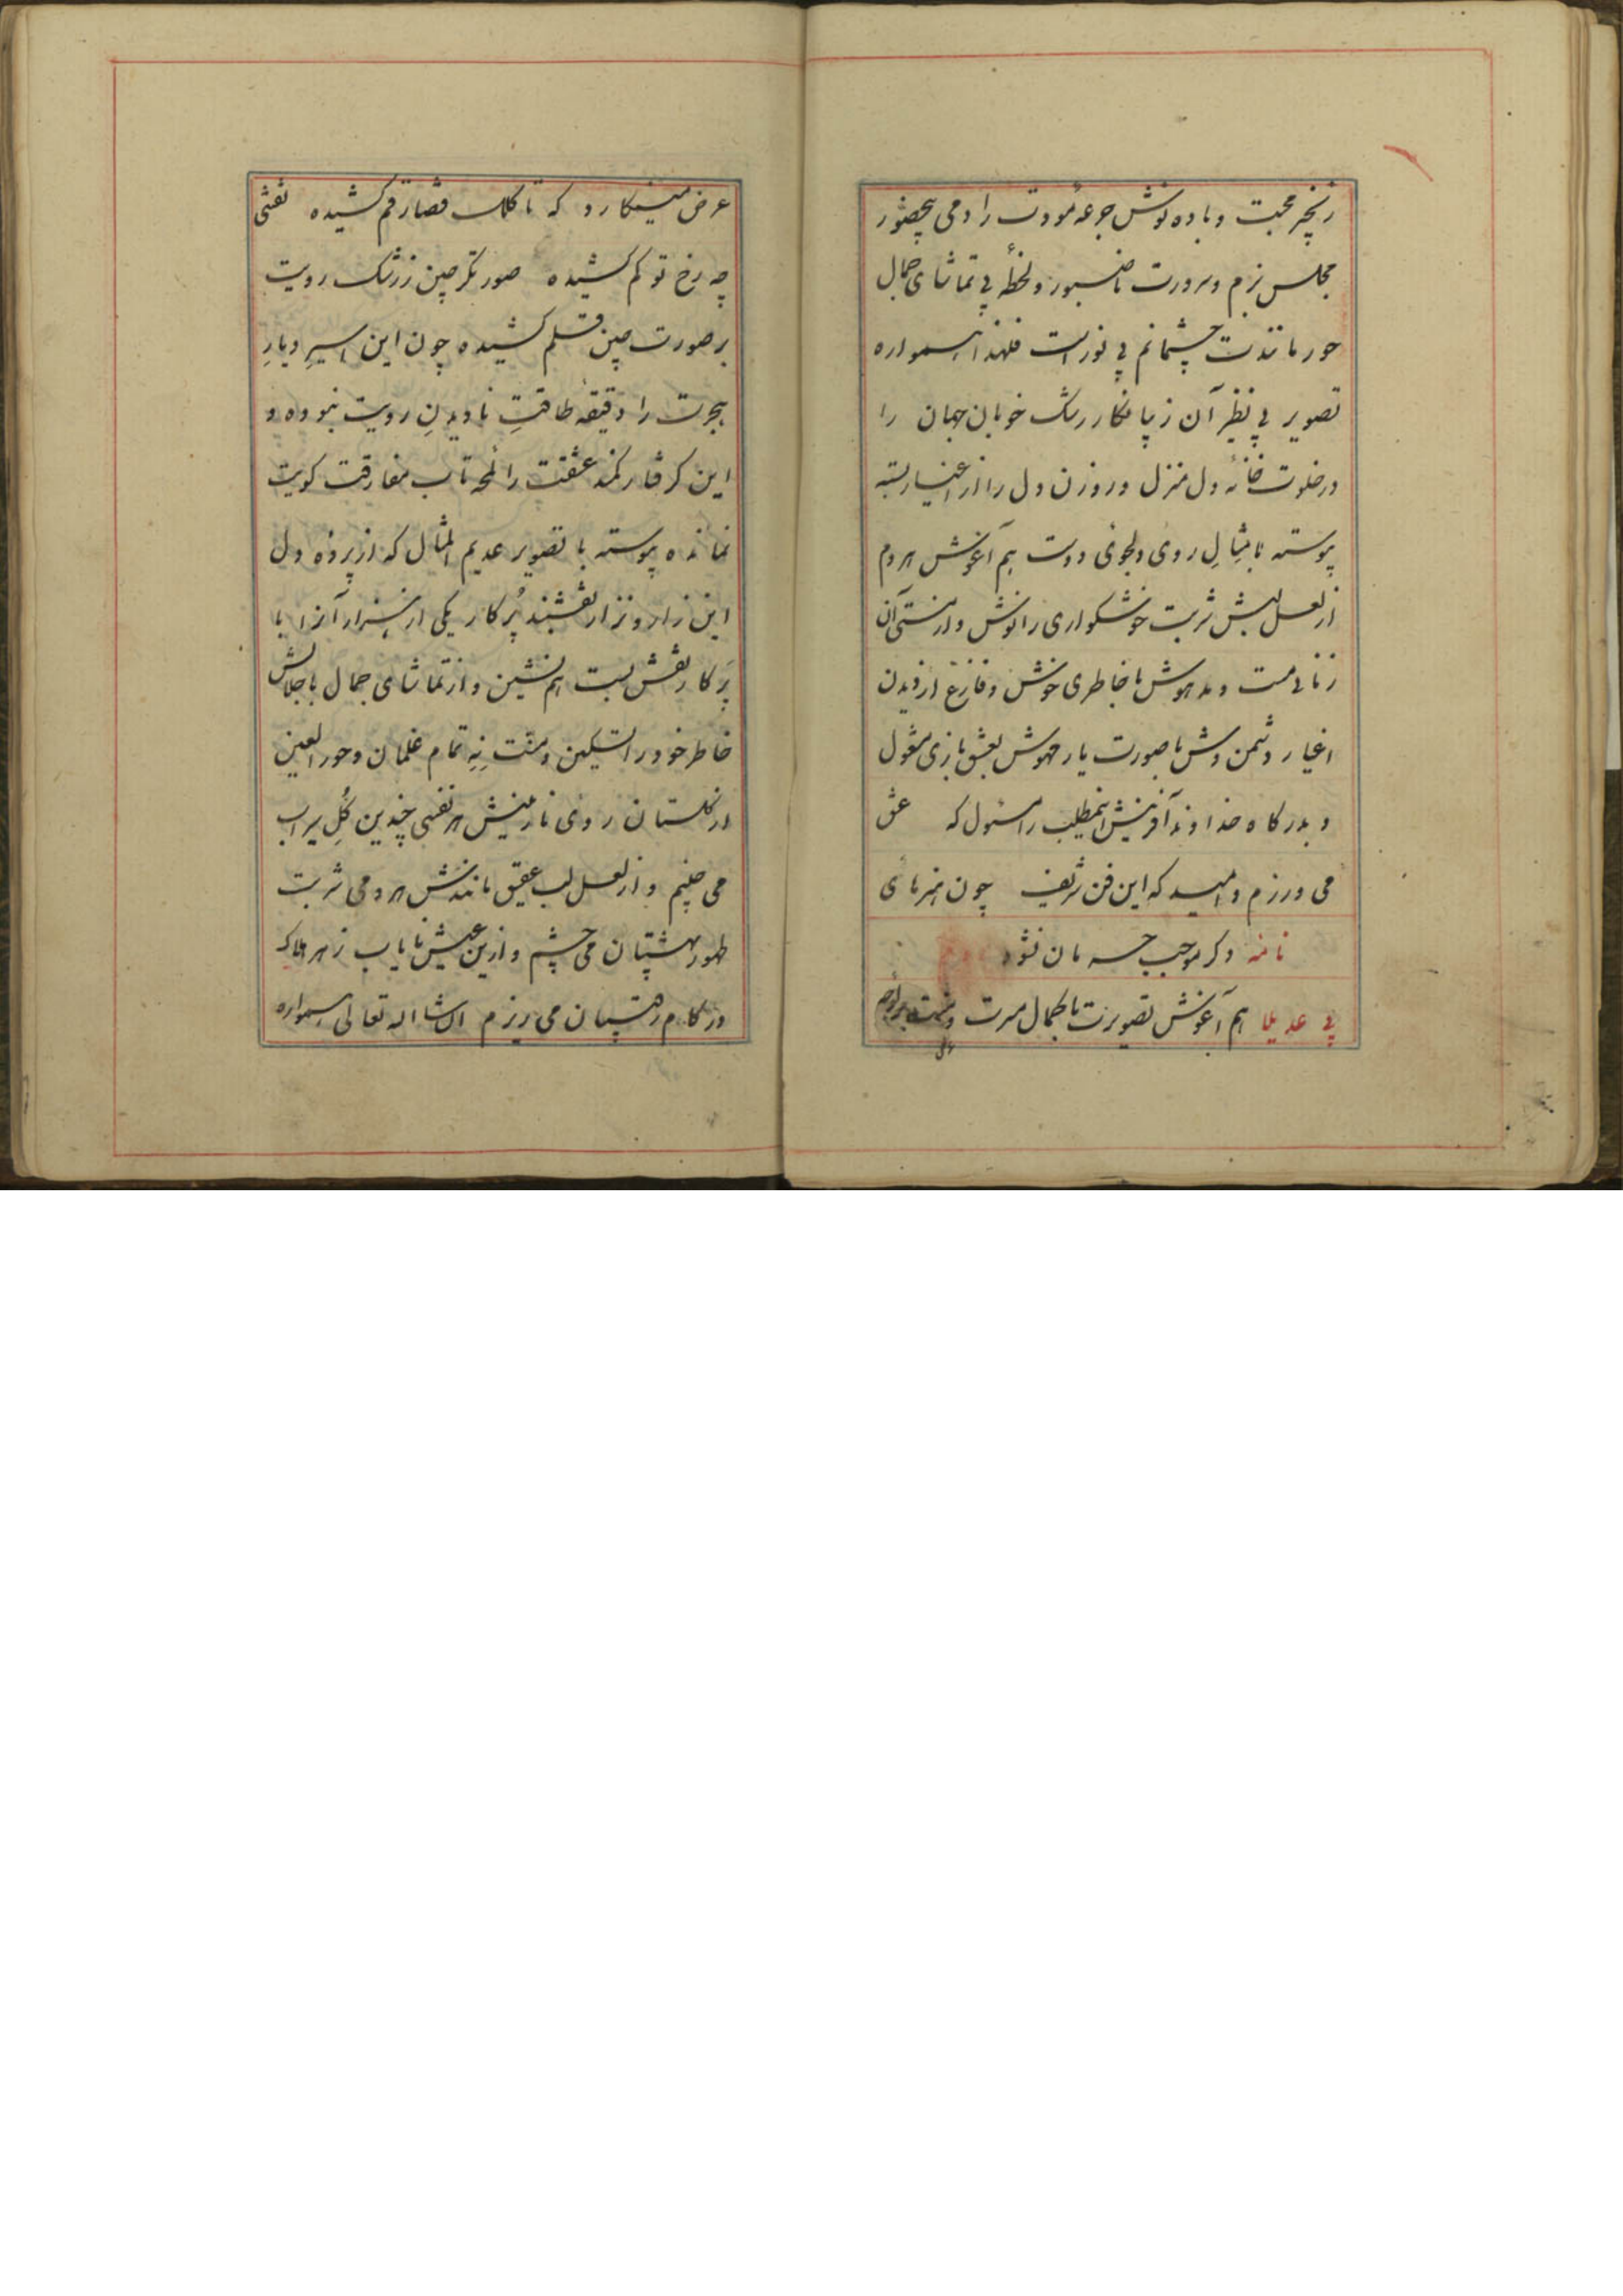 زنجیر محبت و باده نوش جرعهٔ مودت را دمی بیحضور
مجلس بزم و سرورت ناصبور و لحظهٔ بی تماشای جمال
حور مانندت چشمانم بی نور است فلهذا همواره
تصویر بی نظیر آن زیبا نگار رشک خوبان جهان را
در خلوت خانهٔ دل منزل و روزن دل را از اغیار بسته
پیوسته با مثالِ روی دلجوی دوست هم آغوش هر دم
از لعل لبش شربت خوشگواری را نوش و از مستی آن
زمانی مست و مدهوش با خاطری خوش و فارغ از دیدن
اغیار دشمن وش با صورت یار مهوش بعشق بازی مشغول
و بدرگاه خداوند آفرینش اینمطلب را مسئول که عشق
می ورزم و امید که این فن شریف چون هنرهای
دگر موجب حرمان نشود نامه
بی عدیلا هم آغوش تصویرت با کمال مسرت و
عرض مینگارد که تا کلک قضا رقم کشیده نقشی
چه رخ تو کم کشیده صورتگر چین ز رشک رویت
بر صورت چین قلم کشیده چون این اسیرِ دیارِ
هجرت را دقیقهٔ طاقتِ نادیدنِ رویت نبوده و
این گرفتار کمند عشقت را لمحهٔ تاب مفارقت کویت
نمانده پیوسته با تصویر عدیم المثال که از پرده دل
این زار و نزار نقشبند پُرکار یکی از هزار آنرا با
پَرکار نقش بست هم نشین و از تماشای جمال با جلالش
خاطر خود را تسکین و منّت نِهِ تمام غلمان و حور العین
از گلستان روی نازنینش هر نفسی چندین گُلِ سیراب
می چینم و از لعل لب عقیق مانندش هر دمی شربت
طهور بهشتیان می چشم و ازین عیش نایاب زهر هلاک
در کام رقیبان می ریزم ان شا اله تعالی همواره